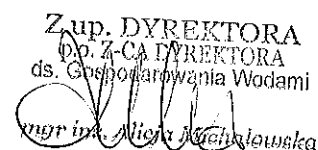 Z up. DYREKTORA
p.o. Z-CA DYREKTORA
ds. Gospodarowania Wodami
mgr inż. Alicja Michalewska